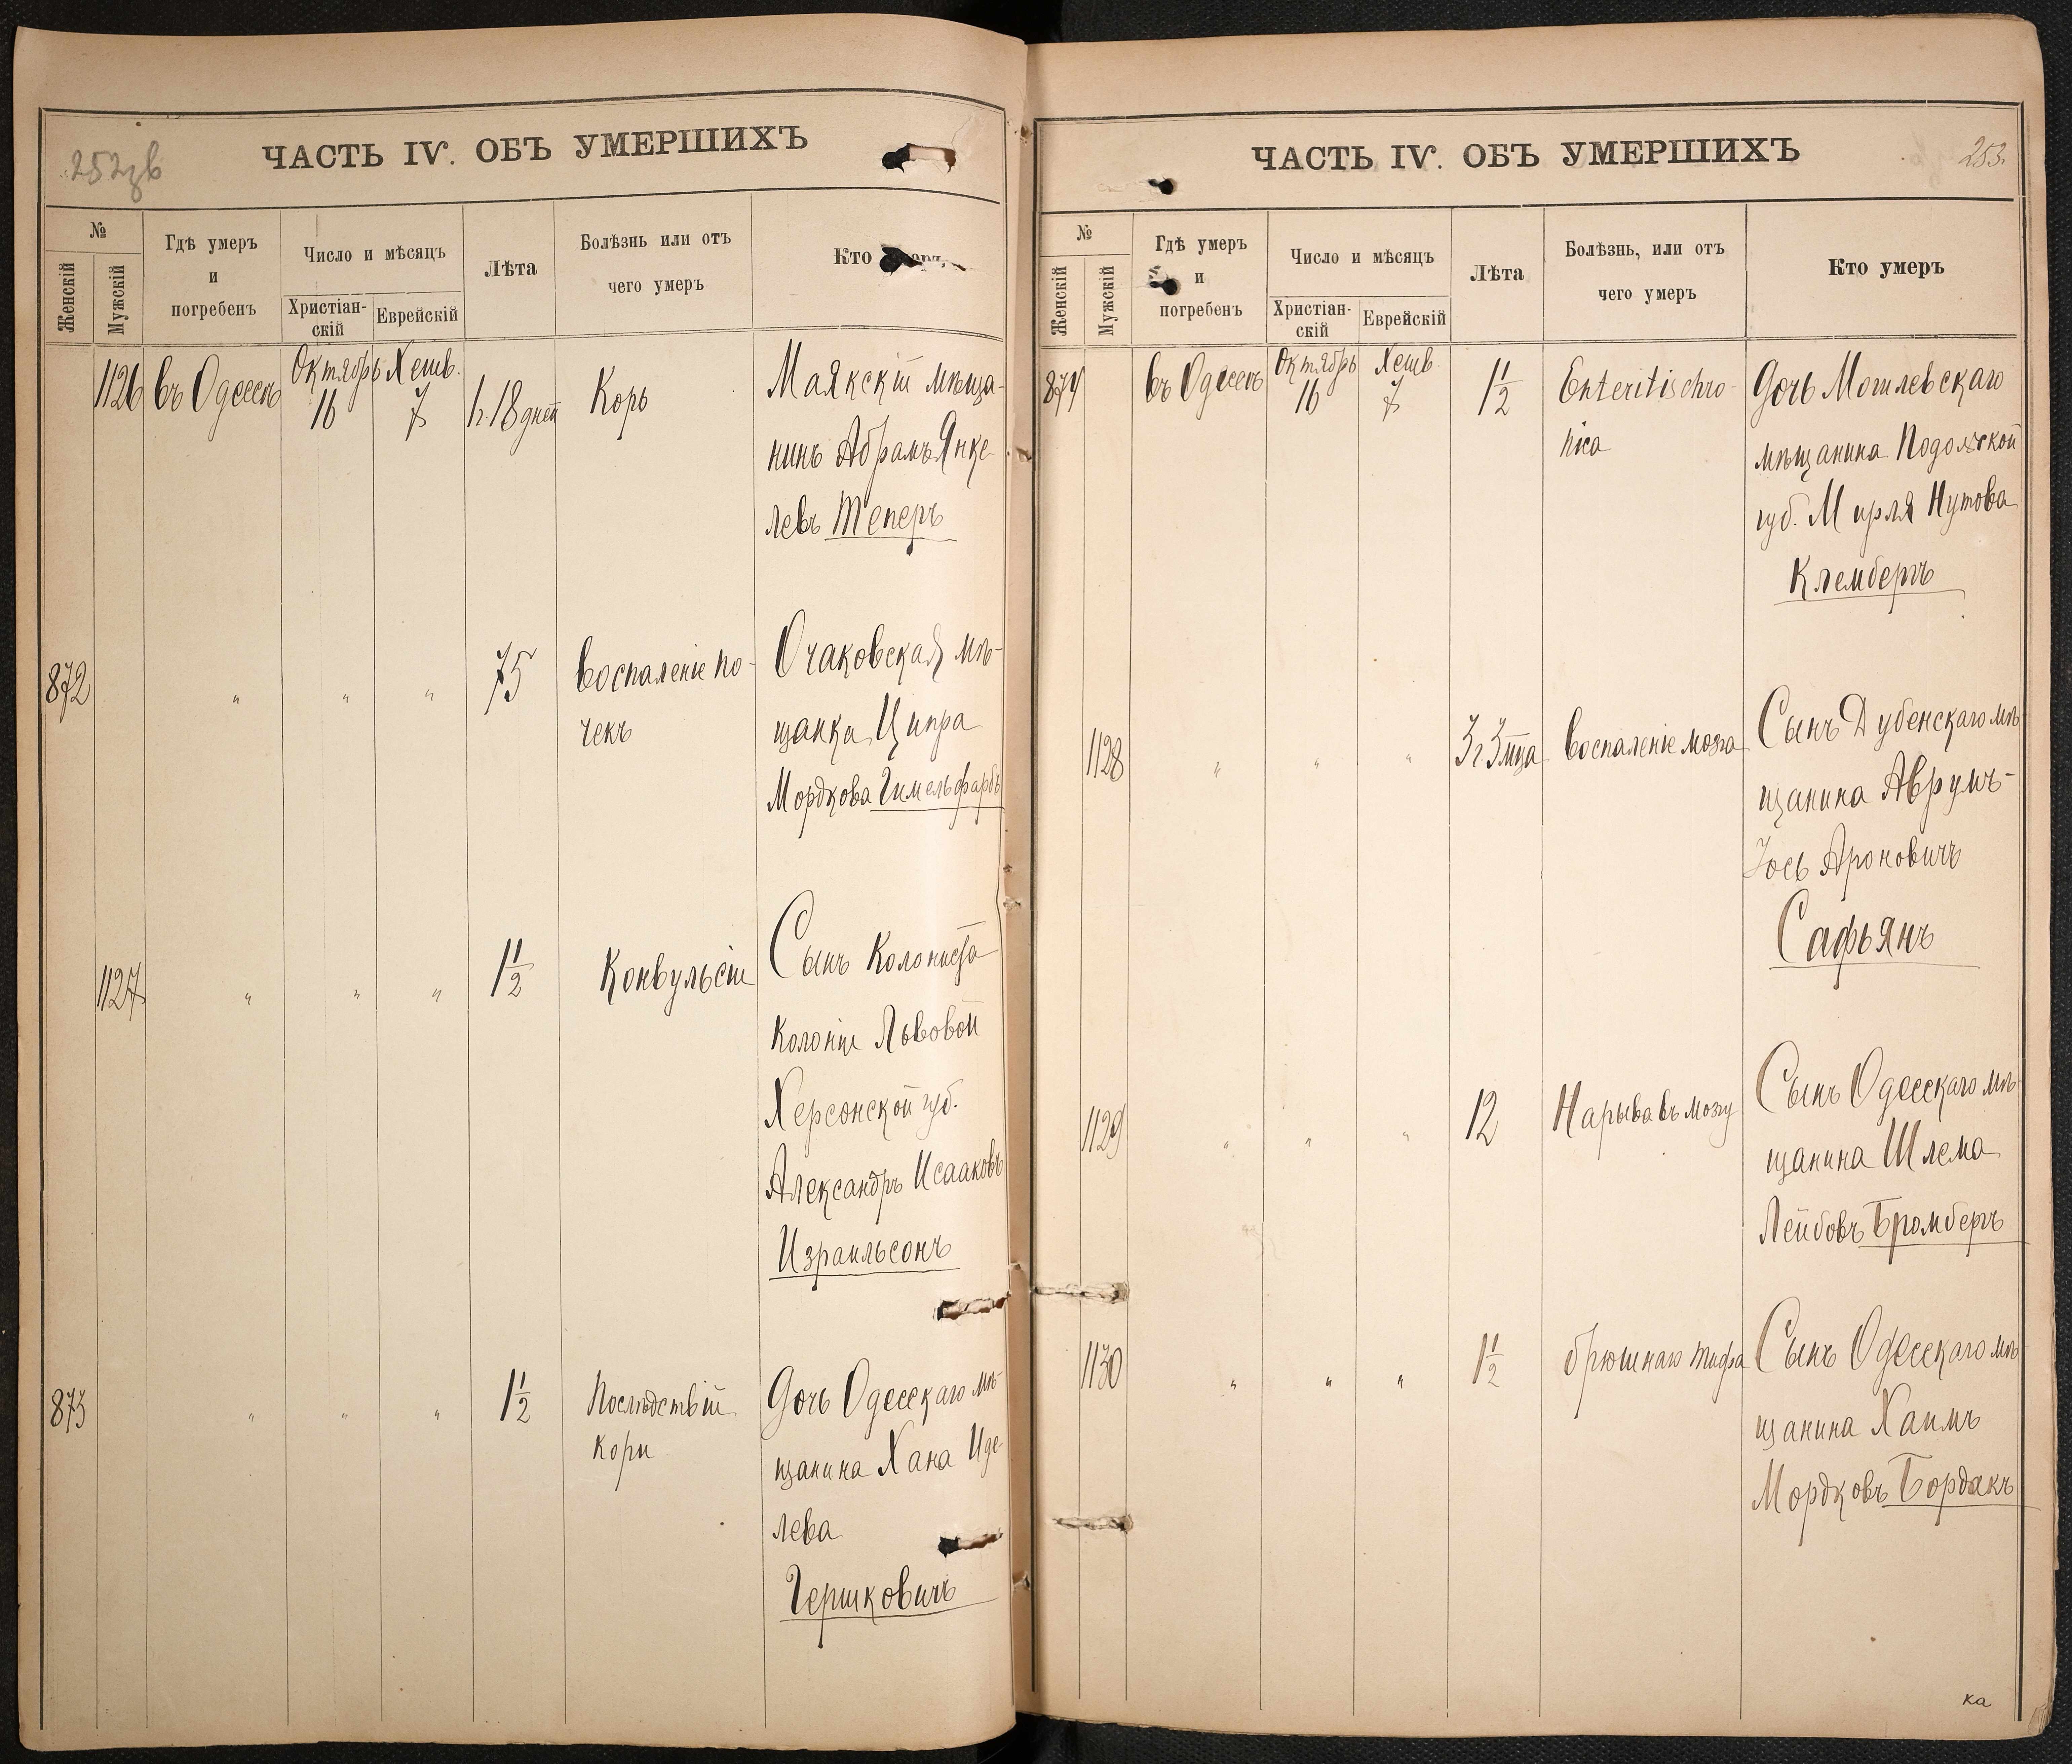 252 зв
ЧАСТЬ IV. ОБЪ УМЕРШИХЪ
№
Женскій
Мужскій
Гдѣ умеръ
и
погребенъ
Число и мѣсяцъ
Христіан-
скій
Еврейскій
Лѣта
Болѣзнь или отъ
чего умеръ
Кто
1126 въ Одессѣ Октябрь 16 Хешв. 7 1 г. 18 дней Корь Маякскій мѣща-
нинъ Абрамъ Янке-
левъ Теперъ
872 " " " 75 Воспаленіе по- Очаковская мѣ-
чекъ щанка Ципра
Мордкова Гимельфарбъ
1127 " " " 1 1/2 Конвульсіи Сынъ колониста
колоніи Львовой
Херсонской губ.
Александръ Исааковъ
Израильсонъ
873 " " " 1 1/2 Послѣдствій Дочь Одесскаго мѣ-
кори щанина Хана Иде-
лева
Гершковичъ
253.
ЧАСТЬ IV. ОБЪ УМЕРШИХЪ
№
Женскій
Мужскій
Гдѣ умеръ
и
погребенъ
Число и мѣсяцъ
Христіан-
скій
Еврейскій
Лѣта
Болѣзнь, или отъ
чего умеръ
Кто умеръ
874 въ Одессѣ Октябрь 16 Хешв. 7 1 1/2 Enteritis chro- Дочь Могилевскаго
nica мѣщанина Подольской
губ. Мирля Нутова
Клембергъ
1128 " " " 3 г. 3 мца Воспаленіе мозга Сынъ Дубенскаго мѣ-
щанина Аврумъ-
Іось Ароновичъ
Сафьянъ
1129 " " " 12 Нарыва въ мозгу Сынъ Одесскаго мѣ-
щанина Шлема
Лейбовъ Бромбергъ
1130 " " " 1 1/2 брюшнаго тифа Сынъ Одесскаго мѣ-
щанина Хаимъ
Мордковъ Бордакъ
ка